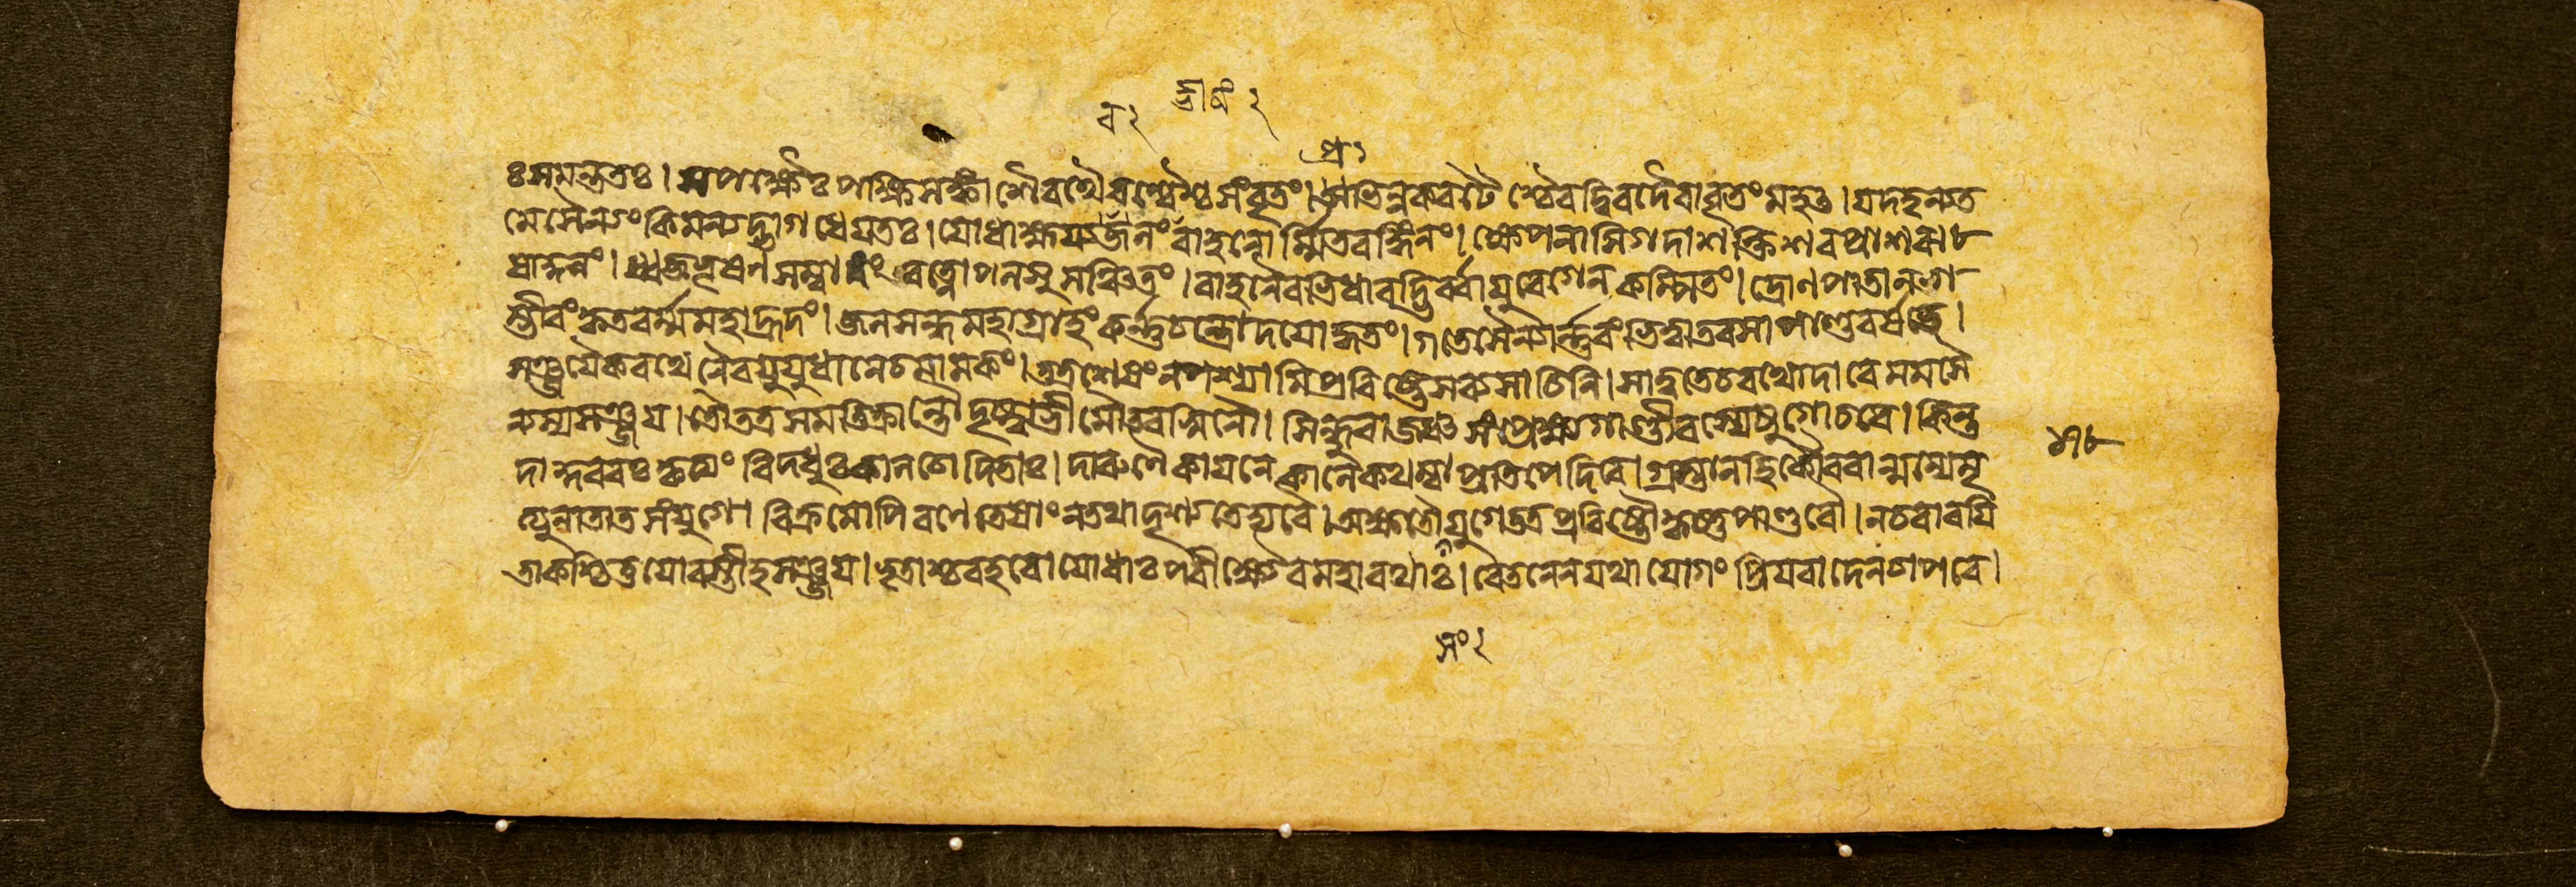 ঃসমন্ততঃ। অপক্ষৈঃপক্ষিসঙ্কাশৈরথৈরশ্বৈশ্চসংবৃতং। প্রভিন্নকরটৈশ্চৈবদ্বিরদৈরাবৃতংমহৎ। যদহন্যত
মেসৈন্যংকিমন্যদ্ভাগধেয়তঃ। যোধাক্ষয্যজলং বাহনোর্ম্মিতরঙ্গিনং। ক্ষেপন্যসিগদাশক্তিশরপ্রাসঝ
ষাকুলং। ধ্বজভূষণসম্বাধং রত্নোপলসুসঞ্চিতং। বাহনৈরভিধাবদ্ভির্ব্বায়ুবেগেনকম্পিতং। দ্রোণপাতালগ
ম্ভীরংকৃতবর্ম্মমহাহ্রদং। জলসন্ধমহাগ্রাহংকর্ণচন্দ্রোদয়োদ্ধতং। গতেসৈন্যার্ণবংভিত্বাতরসাপাণ্ডবর্ষভে।
সঞ্জয়ৈকরথেনৈবযুযুধানেচমামকং। তত্রশেষংনপশ্যামিপ্রবিষ্টেসব্যসাচিনি। সাত্বতেচরথোদারেমমসৈ
ন্যস্যসঞ্জয়। তৌতত্রসমতিক্রান্তৌদৃষ্ট্বাভীমৌতরস্বিনৌ। সিন্ধুরাজঞ্চসংপ্রেক্ষ্যগাণ্ডীবস্যেষুগোচরে। কিন্নু
দাকুরবঃকৃত্যং বিদধুঃকালচোদিতাঃ। দারুণৈকায়নেকালেকথম্বাপ্রতিপেদিরে। গ্রস্তানহিকৌরবান্মন্যেমৃ
ত্যুনাতাতসংযুগে। বিক্রমোপিরণেতেষাংনতথাদৃশ্যতেহ্যবৈ। অক্ষতৌযুগেতত্রপ্রবিষ্টৌকৃষ্ণপাণ্ডবৌ। নচবারয়ি
তাকশ্চিত্তয়োরস্তীহসঞ্জয়। ভৃতাশ্চবহবোযোধাঃপরীক্ষ্যৈবমহারথাঃ। বেতনেনযথাযোগং প্রিয়বাদেনচাপরে।